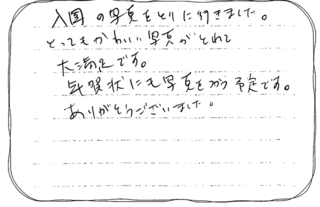 入園の写真をとりに行きました。
とってもかわいい写真がとれて
大満足です。
年賀状にも写真をつかう予定です。
ありがとうございました。